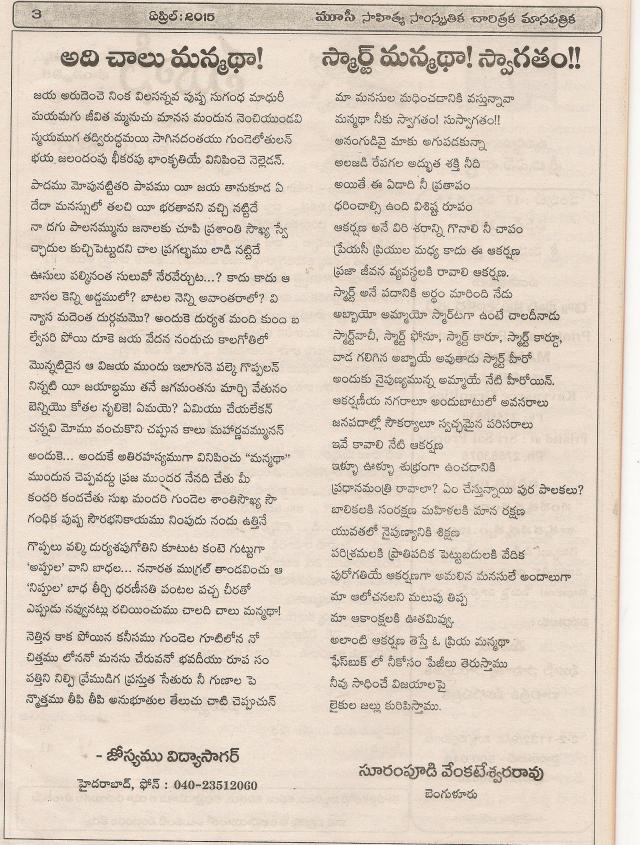 3
ఏప్రిల్: 2015
మూసీ సాహిత్య సాంస్కృతిక చారిత్రక మాసపత్రిక
అది చాలు మన్మథా!
జయ అరుదెంచె నింక విలసన్నవ పుష్ప సుగంధ మాధురీ
మయమగు జీవిత మ్మనుచు మానస మందున నెంచియుండవి
స్మయముగ తద్విరుద్ధమయి సాగినదంతయు గుండెలోతులన్
భయ జలదంపు భీకరపు భాంకృతియే వినిపించె నెల్లెడన్.
పాదము మోపునట్టితరి పాపము యీ జయ తానుకూడ ఏ
దేదొ మనస్సులో తలచి యీ భరతావని వచ్చి నట్టిదే
నా దగు పాలనమ్మును జనాలకు చూపి ప్రశాంతి సౌఖ్య స్వే
చ్ఛాదుల కుచ్చిపెట్టుదని చాల ప్రగల్భము లాడి నట్టిదే
ఊసులు పల్కినంత సులువో నేరవేర్చుట...? కాదు కాదు ఆ
బాసల కెన్ని అడ్డములో? బాటల నెన్ని అవాంతరాలో? వి
న్యాస మదెంత దుర్గమమొ? అందుకె దుర్యశ మంది కుంది బ
ల్వేసరి పోయి దూకె జయ వేదన నందుచు కాలగోతిలో
మొన్నటిదైన ఆ విజయ ముందు ఇలాగునె పల్కె గొప్పలన్
నిన్నటి యీ జయాబ్దము తనే జగమంతను మార్చి వేతునం
బెన్నియొ కోతల న్నలికె! ఏమయె? ఏమియు చేయలేకన్
చన్నవి మోము వంచుకొని చప్పున కాలు మహార్ణవమ్మునన్
అందుకె... అందుకే అతిరహస్యముగా వినిపించు “మన్మథా”
ముందున చెప్పవద్దు ప్రజ ముందర నేనది చేతు మీ
కందరి కందచేతు సుఖ మందరి గుండెల శాంతిసౌఖ్య సౌ
గంధిక పుష్ప సౌరభనికాయము నింపుదు నందు ఉత్తినే
గొప్పలు వల్కి దుర్యశపుగోతిని కూటుట కంటె గుట్టుగా
‘అప్పుల’ వాని బాధల... ననారత ముగ్రల్ తాండవించు ఆ
‘నిప్పుల’ బాధ తీర్చి ధరణీసతి పంటల వచ్చ చీరతో
ఎప్పుడు నవ్వునట్లు రచియించుము చాలది చాలు మన్మథా!
నెత్తిన కాక పోయిన కనీసము గుండెల గూటిలోన నో
చిత్తము లోననో మనసు చేరువనో భవదీయు రూప సం
పత్తిని నిల్పి వ్రేముడిగ ప్రస్తుత సేతురు నీ గుణాల పె
న్మొత్తము తీపి తీపి అనుభూతుల తేలుచు చాటి చెప్పుచున్
- జోస్యము విద్యాసాగర్
హైదరాబాద్, ఫోన్ : 040-23512060
స్మార్ట్ మన్మథా! స్వాగతం!!
మా మనసుల మధించడానికి వస్తున్నావా
మన్మథా నీకు స్వాగతం! సుస్వాగతం!!
అనంగుడివై మాకు అగుపడకున్నా
అలజడి రేపగల అద్భుత శక్తి నీది
అయితే ఈ ఏడాది నీ ప్రతాపం
ధరించాల్సి ఉంది విశిష్ట రూపం
ఆకర్షణ అనే విరి శరాన్ని గొనాలి నీ చాపం
ప్రేయసీ ప్రియుల మధ్య కాదు ఈ ఆకర్షణ
ప్రజా జీవన వ్యవస్థలకి రావాలి ఆకర్షణ.
స్మార్ట్ అనే పదానికి అర్థం మారింది నేడు
అబ్బాయో అమ్మాయో స్మార్ట్‌గా ఉంటే చాలదీనాడు
స్మార్ట్‌వాచీ, స్మార్ట్ ఫోనూ, స్మార్ట్ కారూ, స్మార్ట్ కార్డూ,
వాడ గలిగిన అబ్బాయే అవుతాడు స్మార్ట్ హీరో
అందుకు నైపుణ్యమున్న అమ్మాయే నేటి హీరోయిన్.
ఆకర్షణీయ నగరాలూ అందుబాటులో అవసరాలు
జనపదాల్లో సౌకర్యాలూ స్వచ్ఛమైన పరిసరాలు
ఇవే కావాలి నేటి ఆకర్షణ
ఇళ్ళూ ఊళ్ళూ శుభ్రంగా ఉంచడానికి
ప్రధానమంత్రి రావాలా? ఏం చేస్తున్నాయి పుర పాలకలు?
బాలికలకి సంరక్షణ మహిళలకి మాన రక్షణ
యువతలో నైపుణ్యానికి శిక్షణ
పరిశ్రమలకి ప్రాతిపదిక పెట్టుబదులకి వేదిక
పురోగతియే ఆకర్షణగా అమలిన మనసులే అందాలుగా
మా ఆలోచనలని మలుపు తిప్ప
మా ఆకాంక్షలకి ఊతమివ్వు.
అలాంటి ఆకర్షణ తెస్తే ఓ ప్రియ మన్మథా
ఫేస్‌బుక్ లో నీకోసం పేజీలు తెరుస్తాము
నీవు సాధించే విజయాలపై
లైకుల జల్లు కురిపిస్తాము.
సూరంపూడి వేంకటేశ్వరరావు
బెంగుళూరు